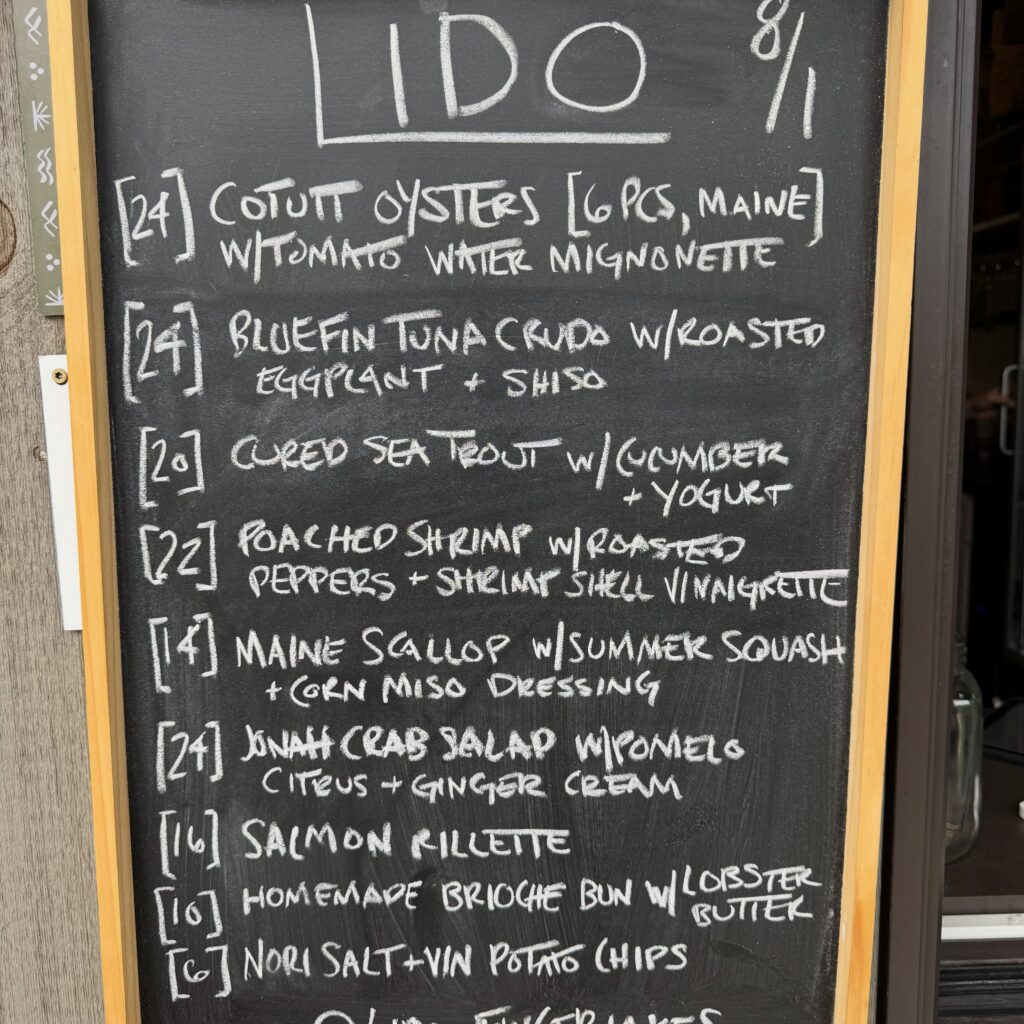 LIDO 8/1
[24] COTUIT OYSTERS [6 PCS, MAINE]
W/TOMATO WATER MIGNONETTE
[24] BLUEFIN TUNA CRUDO W/ROASTED
EGGPLANT + SHISO
[20] CURED SEA TROUT W/CUCUMBER
+ YOGURT
[22] POACHED SHRIMP W/ROASTED
PEPPERS + SHRIMP SHELL VINAIGRETTE
[14] MAINE SCALLOP W/SUMMER SQUASH
+ CORN MISO DRESSING
[24] JONAH CRAB SALAD W/POMELO
CITRUS + GINGER CREAM
[16] SALMON RILLETTE
[10] HOMEMADE BRIOCHE BUN W/LOBSTER
BUTTER
[6] NORI SALT+VIN POTATO CHIPS